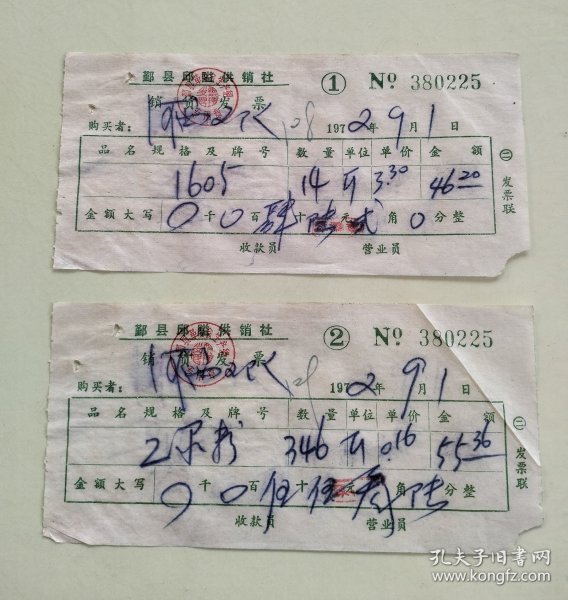 鄞县邱隘供销社 ① № 380225
销货发票
购买者： 1972年9月1日
品名规格及牌号 数量 单位 单价 金额
1605 14 斤 3.30 46.20
金额大写 0千0百肆十陆元贰角0分整
收款员 营业员
㊁发票联
鄞县邱隘供销社 ② № 380225
销货发票
购买者： 1972年9月1日
品名规格及牌号 数量 单位 单价 金额
346 斤 0.16 55.36
金额大写 0千0百伍十伍元叁角陆分整
收款员 营业员
㊁发票联
孔夫子旧书网
www.kongfz.com